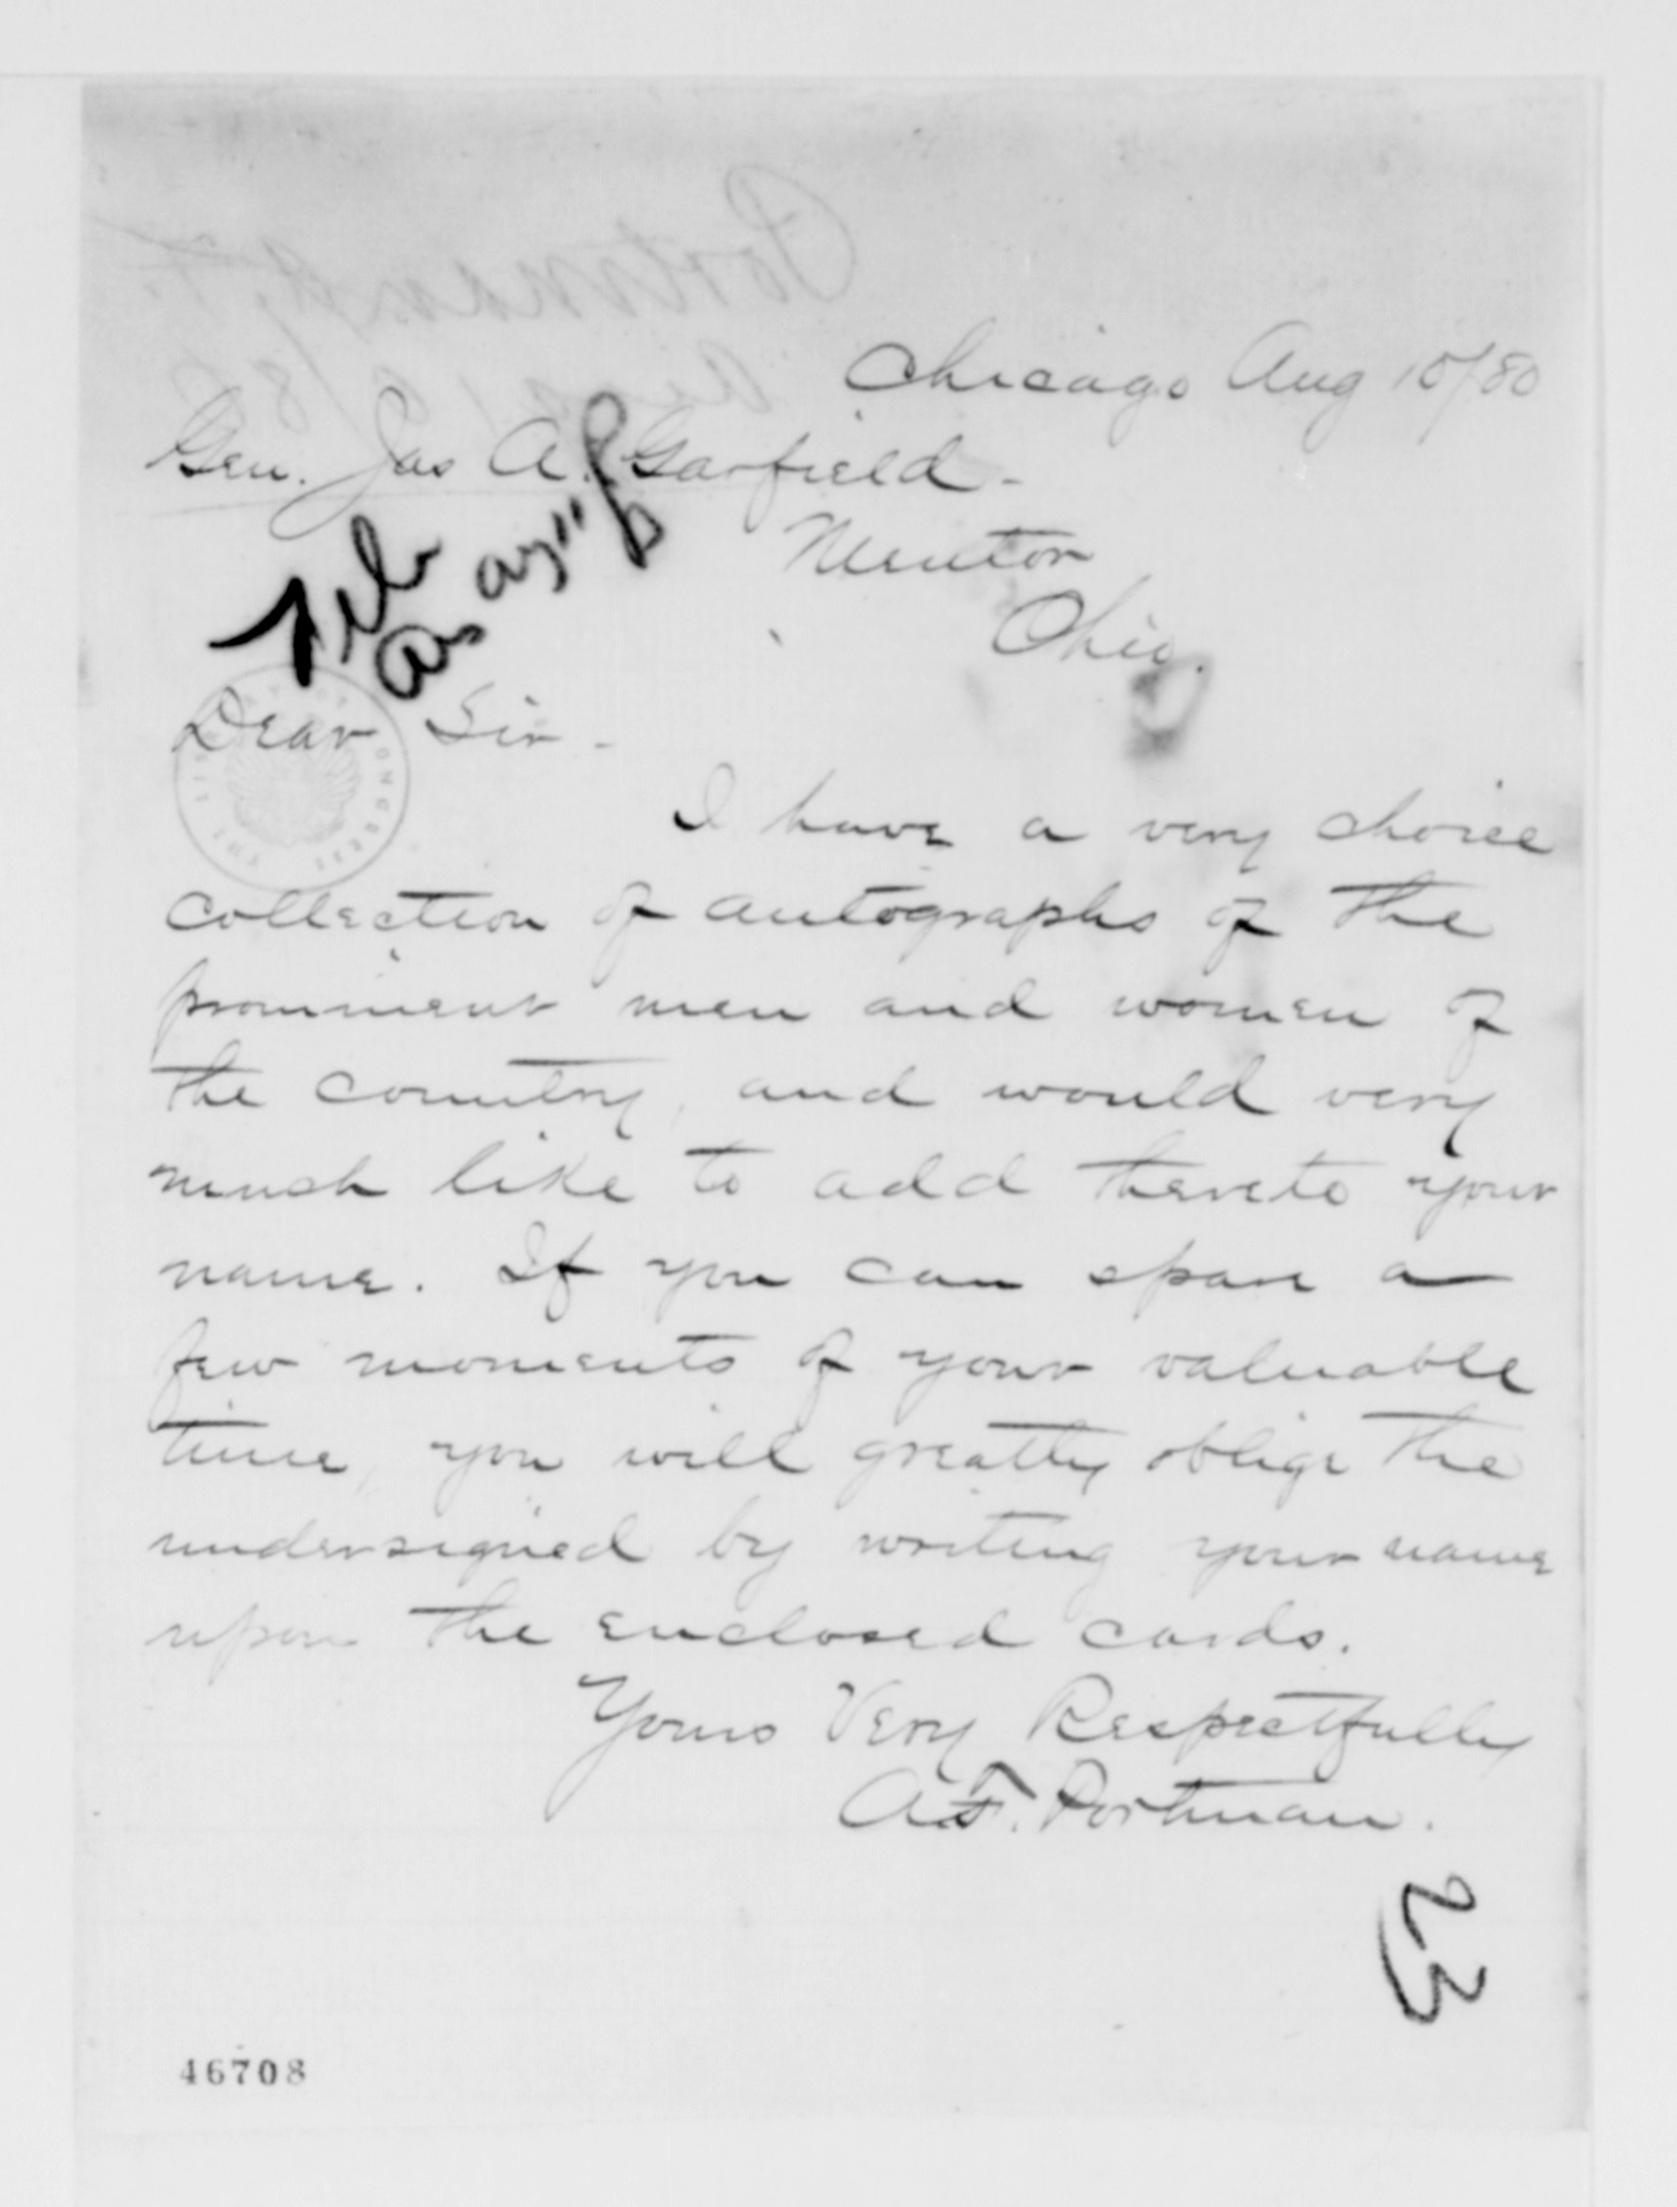 Chicago Aug 10/80
Gen. Jas A. Garfield -
Mentor
Ohio.
Dear Sir -
I have a very choice
collection of autographs of the
prominent men and women of
the country, and would very
much like to add thereto your
name. If you can spare a
few moments of your valuable
time, you will greatly oblige the
undersigned by writing your name
upon the enclosed cards.
Yours Very Respectfully
A.F. Portman.
23
46708